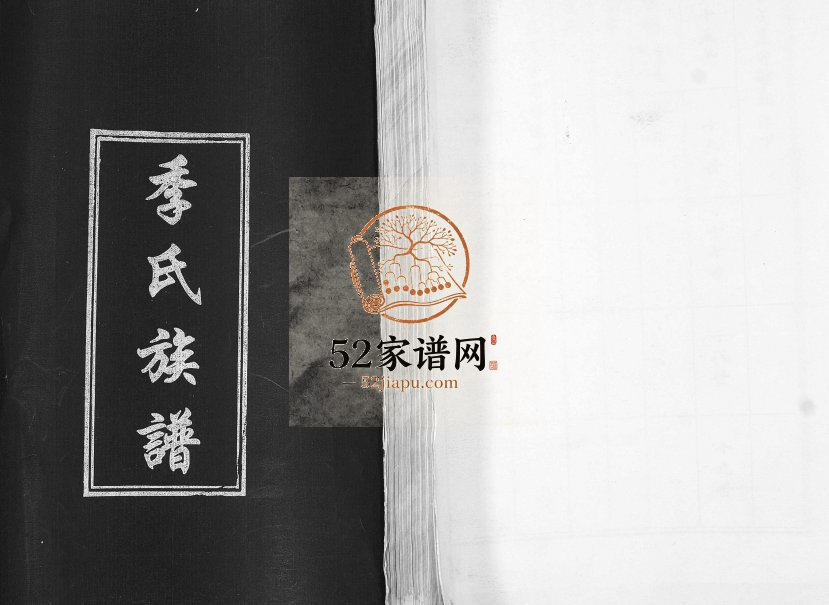 季氏族譜
52家谱网
52jiapu.com